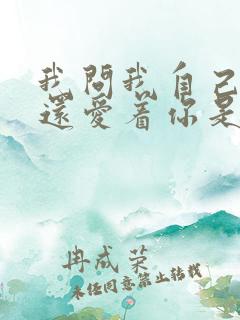 我問我自己
還愛着你是
冉成荣
未经同意禁止转载